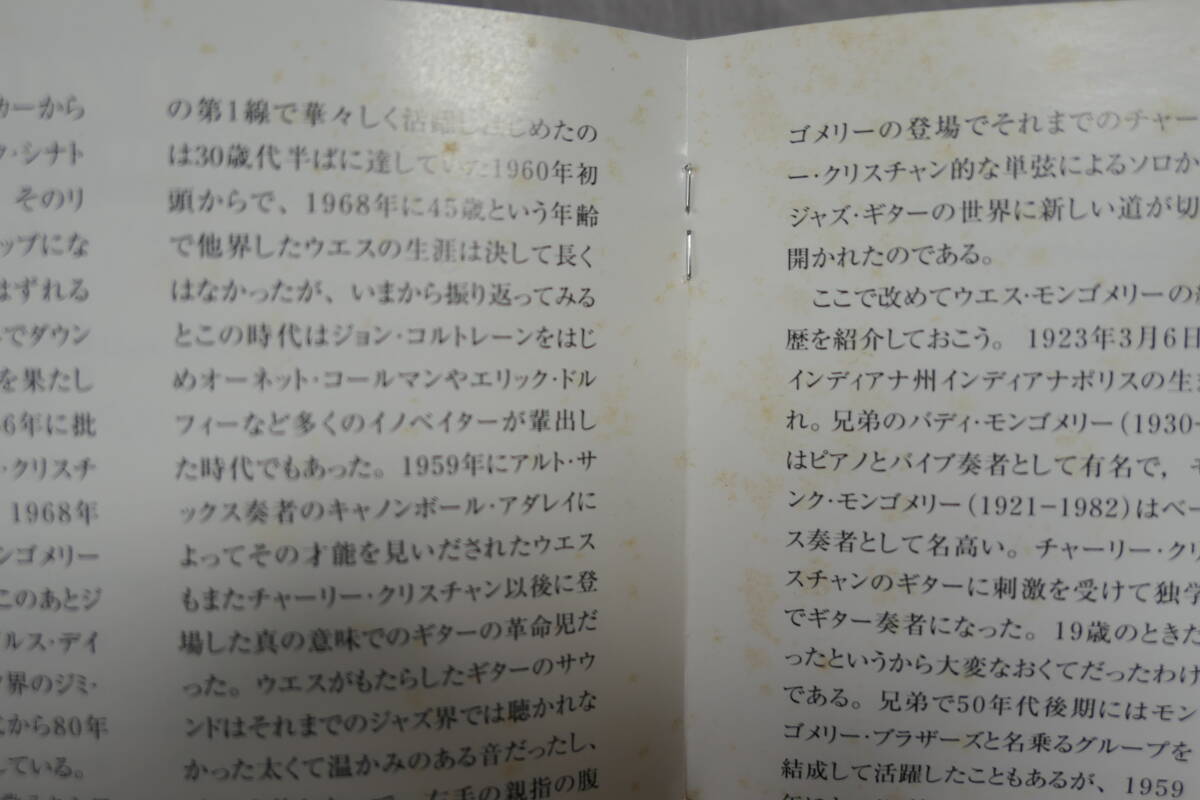 カーから
ク・シナト
そのリ
ップにな
はずれる
でダウン
を果たし
6年に批
・クリスチ
1968年
ンゴメリー
このあとジ
イルス・デイ
界のジミ・
から80年
している。
の第1線で華々しく活躍しはじめたの
は30歳代半ばに達していた1960年初
頭からで、1968年に45歳という年齢
で他界したウエスの生涯は決して長く
はなかったが、いまから振り返ってみる
とこの時代はジョン・コルトレーンをはじ
めオーネット・コールマンやエリック・ドル
フィーなど多くのイノベイターが輩出し
た時代でもあった。1959年にアルト・サ
ックス奏者のキャノンボール・アダレイに
よってその才能を見いだされたウエス
もまたチャーリー・クリスチャン以後に登
場した真の意味でのギターの革命児だ
った。ウエスがもたらしたギターのサウ
ンドはそれまでのジャズ界では聴かれな
かった太くて温かみのある音だったし、
手の親指の腹
ゴメリーの登場でそれまでのチャー
ー・クリスチャン的な単弦によるソロか
ジャズ・ギターの世界に新しい道が切
開かれたのである。
ここで改めてウエス・モンゴメリーの
歴を紹介しておこう。1923年3月6日
インディアナ州インディアナポリスの生
れ。兄弟のバディ・モンゴメリー（1930-
はピアノとバイブ奏者として有名で，モ
ンク・モンゴメリー（1921-1982）はベー
ス奏者として名高い。チャーリー・クリ
スチャンのギターに刺激を受けて独学
でギター奏者になった。19歳のときだ
ったというから大変なおくてだったわけ
である。兄弟で50年代後期にはモン
ゴメリー・ブラザーズと名乗るグループを
結成して活躍したこともあるが、1959